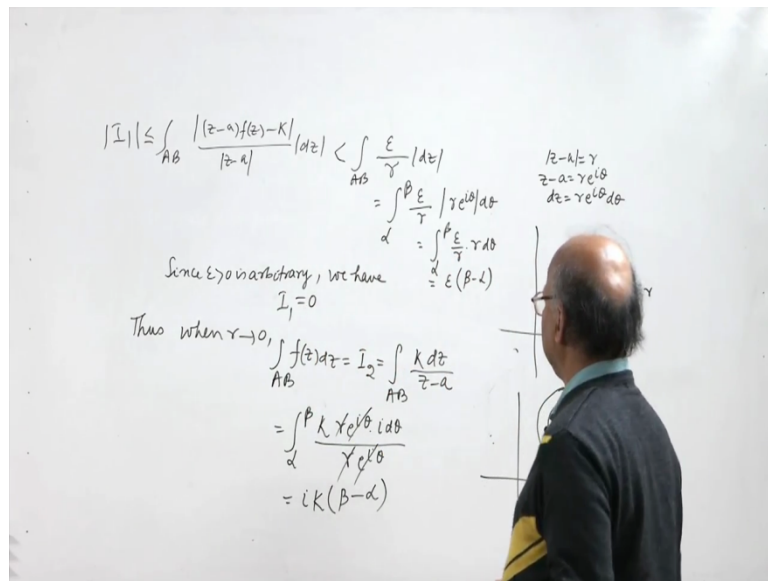 |I₁| ≤ ∫_{AB} |(z-a)f(z)-K| / |z-a| |dz| < ∫_{AB} ε/r |dz|
= ∫_α^β ε/r |re^{iθ}|dθ
= ∫_α^β ε/r · r dθ
= ε(β-α)
|z-a|=r
z-a=re^{iθ}
dz=re^{iθ}dθ
r
Since ε>0 is arbitrary, we have
I₁=0
Thus when r→0,
∫_{AB} f(z)dz = I₂ = ∫_{AB} K dz / z-a
= ∫_α^β K re^{iθ}·i dθ / re^{iθ}
= iK(β-α)